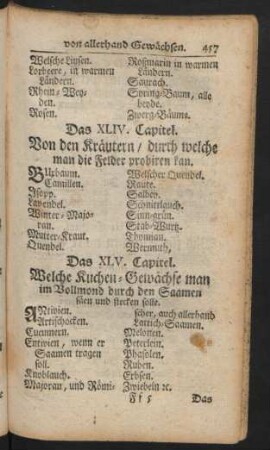 von allerhand Gewächsen. 457
Welsche Linsen.
Lorbeere, in warmen
Ländern.
Rhein-Wey-
den.
Rosen.
Rosmarin in warmen
Ländern.
Sayrach.
Spring-Baum, alle
beyde.
Zwerg-Bäume.
Das XLIV. Capitel.
Von den Kräutern / durch welche
man die Felder probiren kan.
BUxbaum.
Camillen.
Isopp.
Lavendel.
Winter-Majo-
ran.
Mutter-Kraut.
Quendel.
Welscher Quendel.
Raute.
Salbey.
Schnittlauch.
Sinn-grün.
Stab-Wurtz.
Thymian.
Wermuth.
Das XLV. Capitel.
Welche Kuchen-Gewächse man
im Vollmond durch den Saamen
säen und stecken solle.
ANtivien.
Artischocken.
Cucumern.
Entivien, wenn er
Saamen tragen
soll.
Knoblauch.
Majoran, und Römi-
scher, auch allerhand
Lattich-Saamen.
Melonen.
Peterlein.
Phasolen.
Ruben.
Erbsen.
Zwiebeln ꝛc.
Ff 5 Das